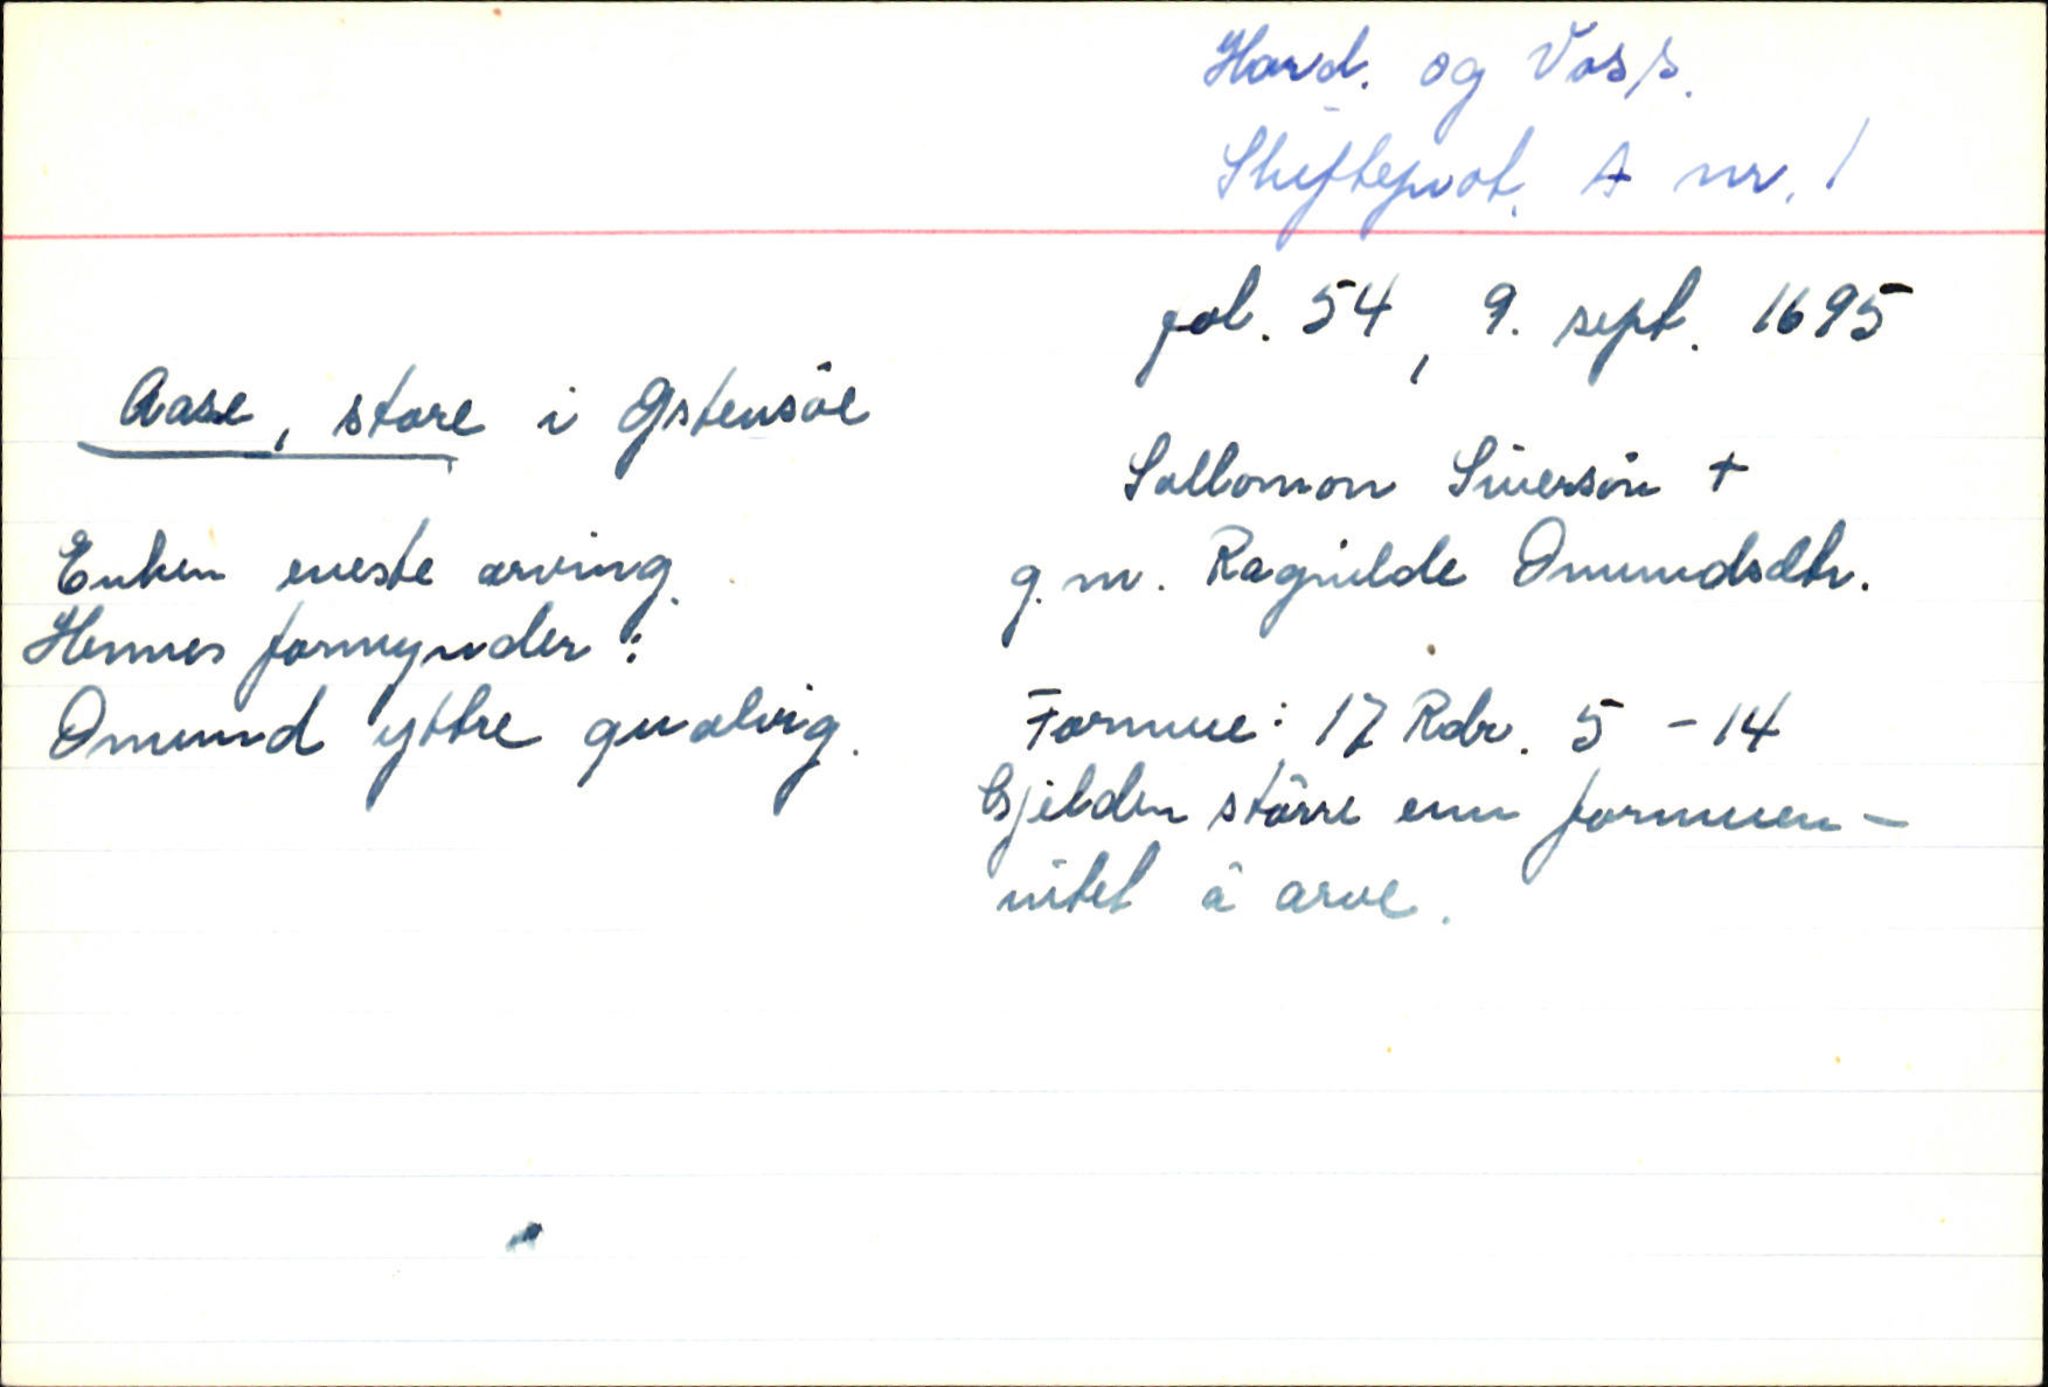 Hard. og Voss.
Skifteprot. A nr. 1
fol. 54, 9. sept. 1695
Aase, store i Østensöe
Sallomon Siversön +
g.m. Ragnilde Omundsdtr.
Enken eneste arving.
Hennes formynder:
Omund yttre qualvig.
Formue: 17 Rdr. 5 - 14
Gjelden större enn formuen -
intet å arve.